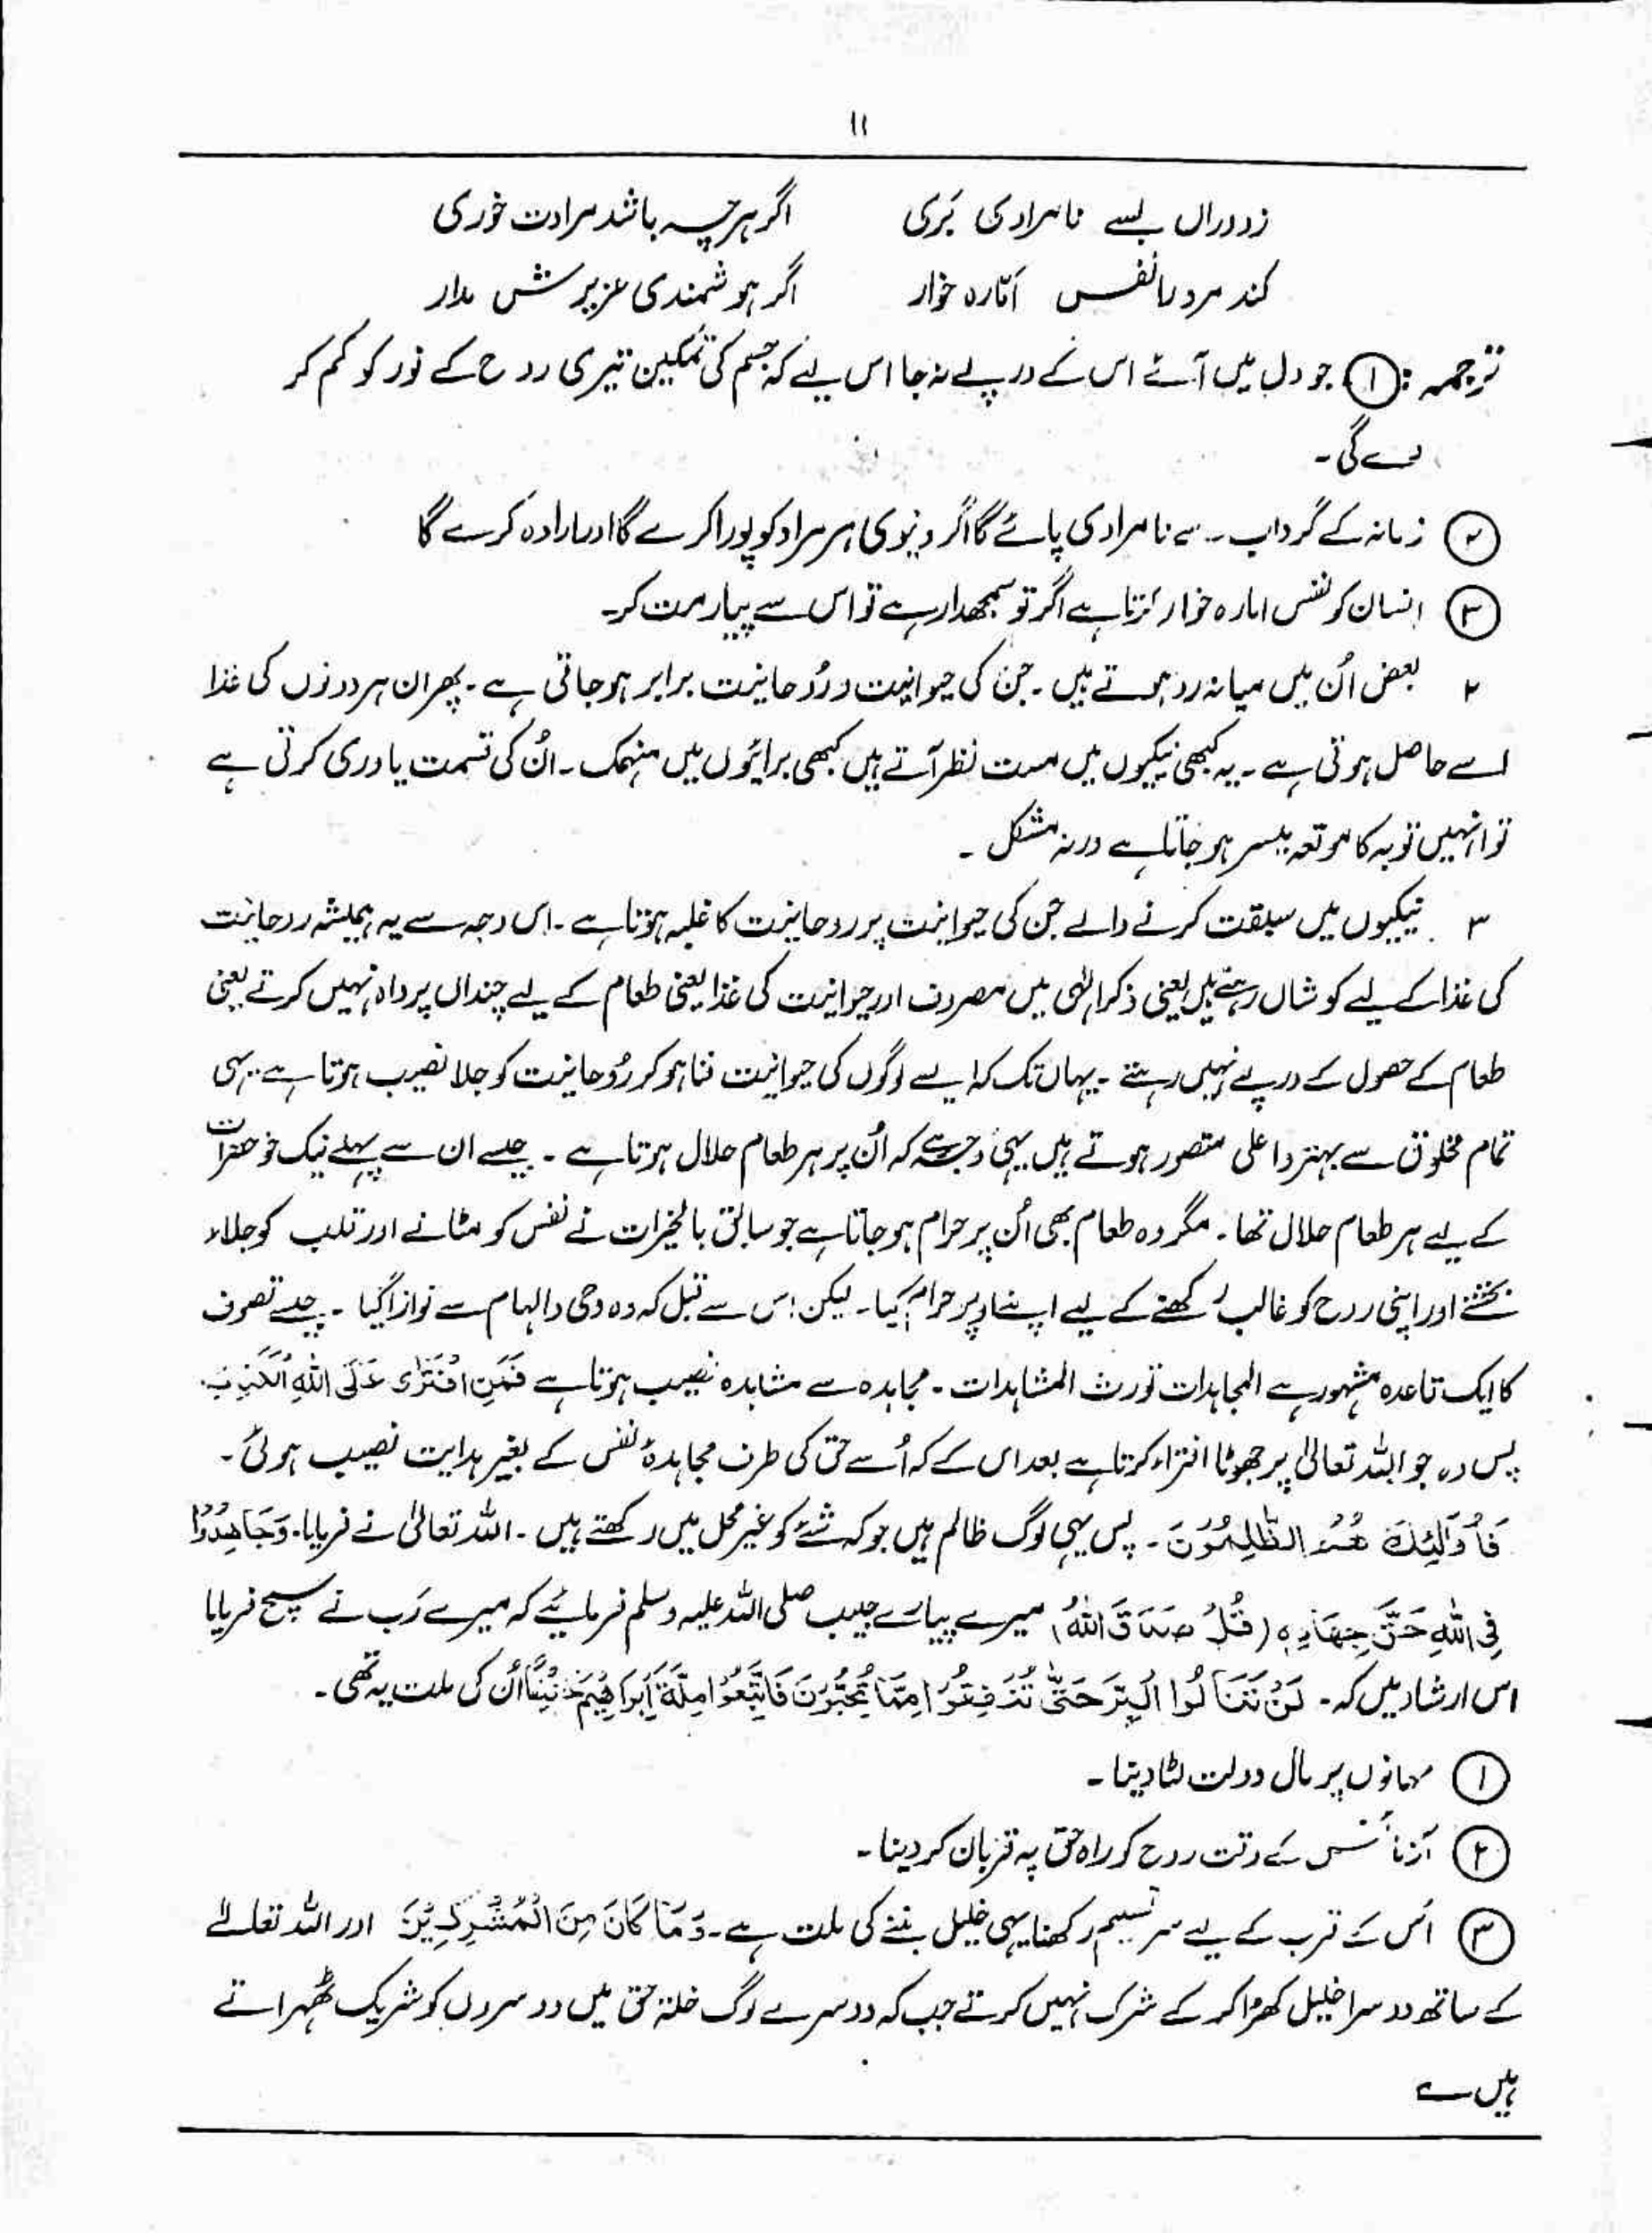 ۱۱
ز دوراں بسے نامرادی بَری اگر ہرچہ باشد مرادت خوری
کند مرد را نفس اَمّارہ خوار اگر ہوشمندی عزیزش مدار
ترجمہ : ① جو دل میں آئے اس کے درپے نہ جا اس لیے کہ جسم کی تمکین تیری روح کے نور کو کم کر
دے گی ۔
② زمانہ کے گرداب سے نامرادی پائے گا اگر دنیوی ہر مراد کو پورا کرے گا اور ارادہ کرے گا
③ انسان کو نفس امارہ خوار کرتا ہے اگر تو سمجھدار ہے تو اس سے پیار مت کر۔
۲ بعض اُن میں میانہ رو ہوتے ہیں ۔ جن کی حیوانیت و رُوحانیت برابر ہو جاتی ہے ۔ پھر ان ہر دونوں کی غذا
اسے حاصل ہوتی ہے ۔ یہ کبھی نیکیوں میں مست نظر آتے ہیں کبھی برائیوں میں منہمک ۔ اُن کی قسمت یاوری کرتی ہے
تو انہیں توبہ کا موقعہ میسر ہو جاتا ہے ورنہ مشکل ۔
۳ نیکیوں میں سبقت کرنے والے جن کی حیوانیت پر روحانیت کا غلبہ ہوتا ہے ۔ اس وجہ سے یہ ہمیشہ روحانیت
کی غذا کے لیے کوشاں رہتے ہیں یعنی ذکر الٰہی میں مصروف اور حیوانیت کی غذا یعنی طعام کے لیے چنداں پرواہ نہیں کرتے یعنی
طعام کے حصول کے درپے نہیں رہتے ۔ یہاں تک کہ ایسے لوگوں کی حیوانیت فنا ہو کر رُوحانیت کو جلا نصیب ہوتا ہے یہی
تمام مخلوق سے بہتر و اعلی متصور ہوتے ہیں یہی وجہ ہے کہ اُن پر ہر طعام حلال ہوتا ہے ۔ جیسے ان سے پہلے نیک خو حضرات
کے لیے ہر طعام حلال تھا ۔ مگر وہ طعام بھی اُن پر حرام ہو جاتا ہے جو سابق بالخیرات نے نفس کو مٹانے اور قلب کو جلاء
بخشنے اور اپنی روح کو غالب رکھنے کے لیے اپنے اوپر حرام کیا ۔ لیکن اس سے قبل کہ وہ وحی و الہام سے نوازا گیا ۔ جیسے تصوف
کا ایک قاعدہ مشہور ہے المجاہدات تورث المشاہدات ۔ مجاہدہ سے مشاہدہ نصیب ہوتا ہے فَمَنِ افْتَرٰى عَلَى اللّٰهِ الْكَذِبَ
پس وہ جو اللہ تعالیٰ پر جھوٹا افتراء کرتا ہے بعد اس کے کہ اُسے حق کی طرف مجاہدۂ نفس کے بغیر ہدایت نصیب ہوئی ۔
فَاُولٰٓئِكَ هُمُ الظّٰلِمُوْنَ ۔ پس یہی لوگ ظالم ہیں جو کہ شئے کو غیر محل میں رکھتے ہیں ۔ اللہ تعالیٰ نے فرمایا۔ وَجَاهِدُوْا
فِى اللّٰهِ حَقَّ جِهَادِهٖ (قُلْ صَدَقَ اللّٰهُ) میرے پیارے حبیب صلی اللہ علیہ وسلم فرمائیے کہ میرے رَب نے سچ فرمایا
اس ارشاد میں کہ ۔ لَنْ تَنَالُوا الْبِرَّ حَتّٰى تُنْفِقُوْا مِمَّا تُحِبُّوْنَ فَاتَّبِعُوْا مِلَّةَ اِبْرَاهِيْمَ حَنِيْفًا اُن کی ملت یہ تھی ۔
① مہمانوں پر مال دولت لٹا دینا ۔
② آزمائش کے وقت روح کو راہ حق پہ قربان کر دینا ۔
③ اُس کے قرب کے لیے سر تسلیم رکھنا یہی خلیل بننے کی ملت ہے ۔ وَمَا كَانَ مِنَ الْمُشْرِكِيْنَ اور اللہ تعالےٰ
کے ساتھ دوسرا خلیل کھڑا کر کے شرک نہیں کرتے جب کہ دوسرے لوگ خلۃ حق میں دوسروں کو شریک ٹھہراتے
ہیں ے